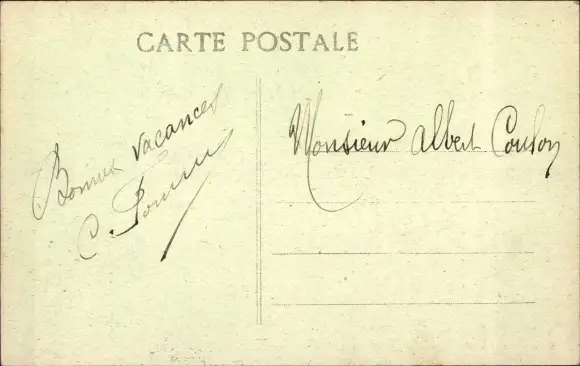 CARTE POSTALE
Bonnes vacances
C.
Monsieur Albert Coulon